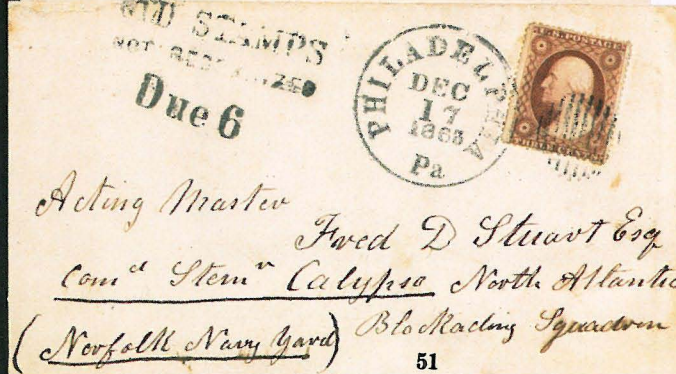 OLD STAMPS
NOT RECOGNIZED
Due 6
PHILADELPHIA
DEC
17
1863
Pa
U.S. POSTAGE
THREE CENTS
Acting Master
Fred D Stuart Esq
Comd Stemr Calypso North Atlantic
(Norfolk Navy Yard) Blockading Squadron
51